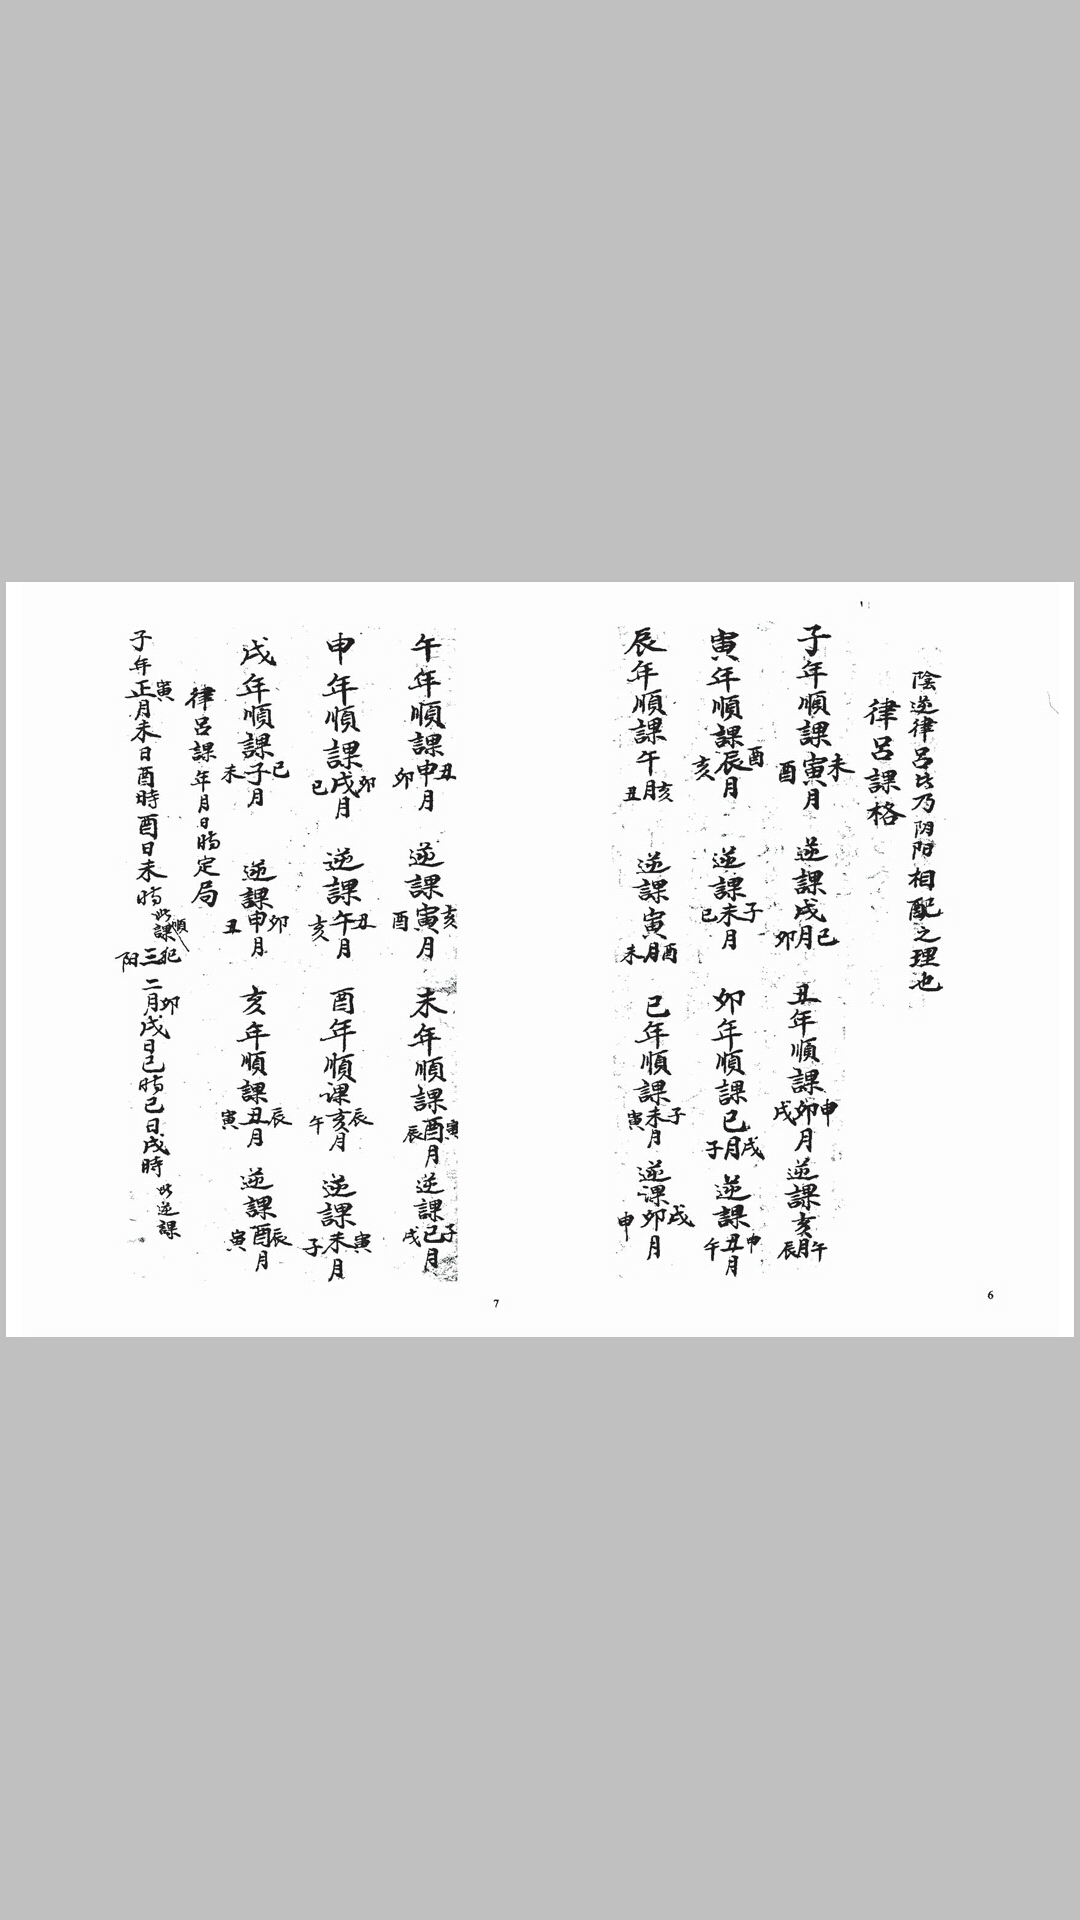 陰逆律呂此乃阴阳相配之理也
律呂課格
子年順課寅月未酉 逆課戌月巳卯 丑年順課卯月申戌 逆課亥月午辰
寅年順課辰月酉亥 逆課未月子巳 卯年順課巳月戌子 逆課丑月申午
辰年順課午月亥丑 逆課寅月酉未 巳年順課未月子寅 逆课卯月戌申
6
午年順課申月丑卯 逆課寅月亥酉 未年順課酉月寅辰 逆課巳月子戌
申年順課戌月卯巳 逆課午月丑亥 酉年順课亥月辰午 逆課未月寅子
戌年順課子月巳未 逆課申月卯丑 亥年順課丑月辰寅 逆課酉月辰寅
律呂課年月日時定局
子年正月寅未日酉時酉日未時此順課犯三阳 二月卯戌日巳時巳日戌時此逆課
7